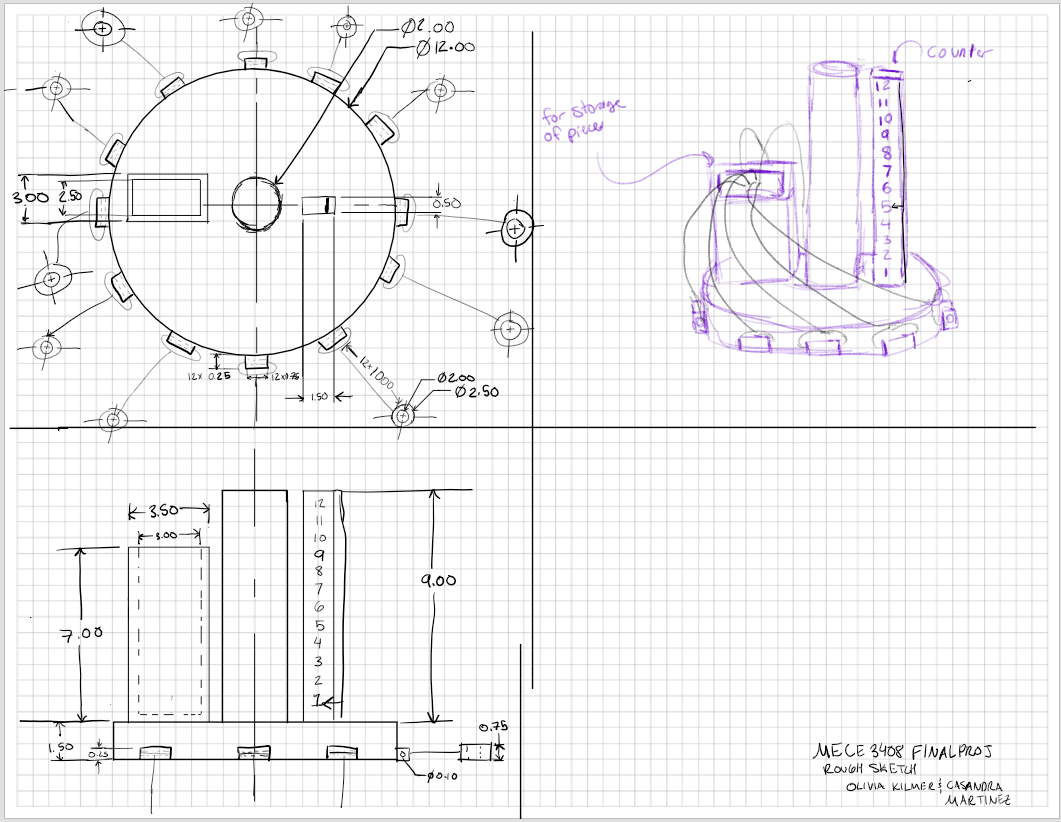 Ø2.00
Ø12.00
3.00
2.50
0.50
12x 0.25
12x0.75
12x1000
1.50
Ø2.00
Ø2.50
Counter
for storage
of pieces
12
11
10
9
8
7
6
5
4
3
2
1
3.50
3.00
7.00
12
11
10
9
8
7
6
5
4
3
2
1
9.00
1.50
0.75
Ø0.10
MECE 3408 FINAL PROJ
ROUGH SKETCH
OLIVIA KILMER & CASANDRA
MARTINEZ